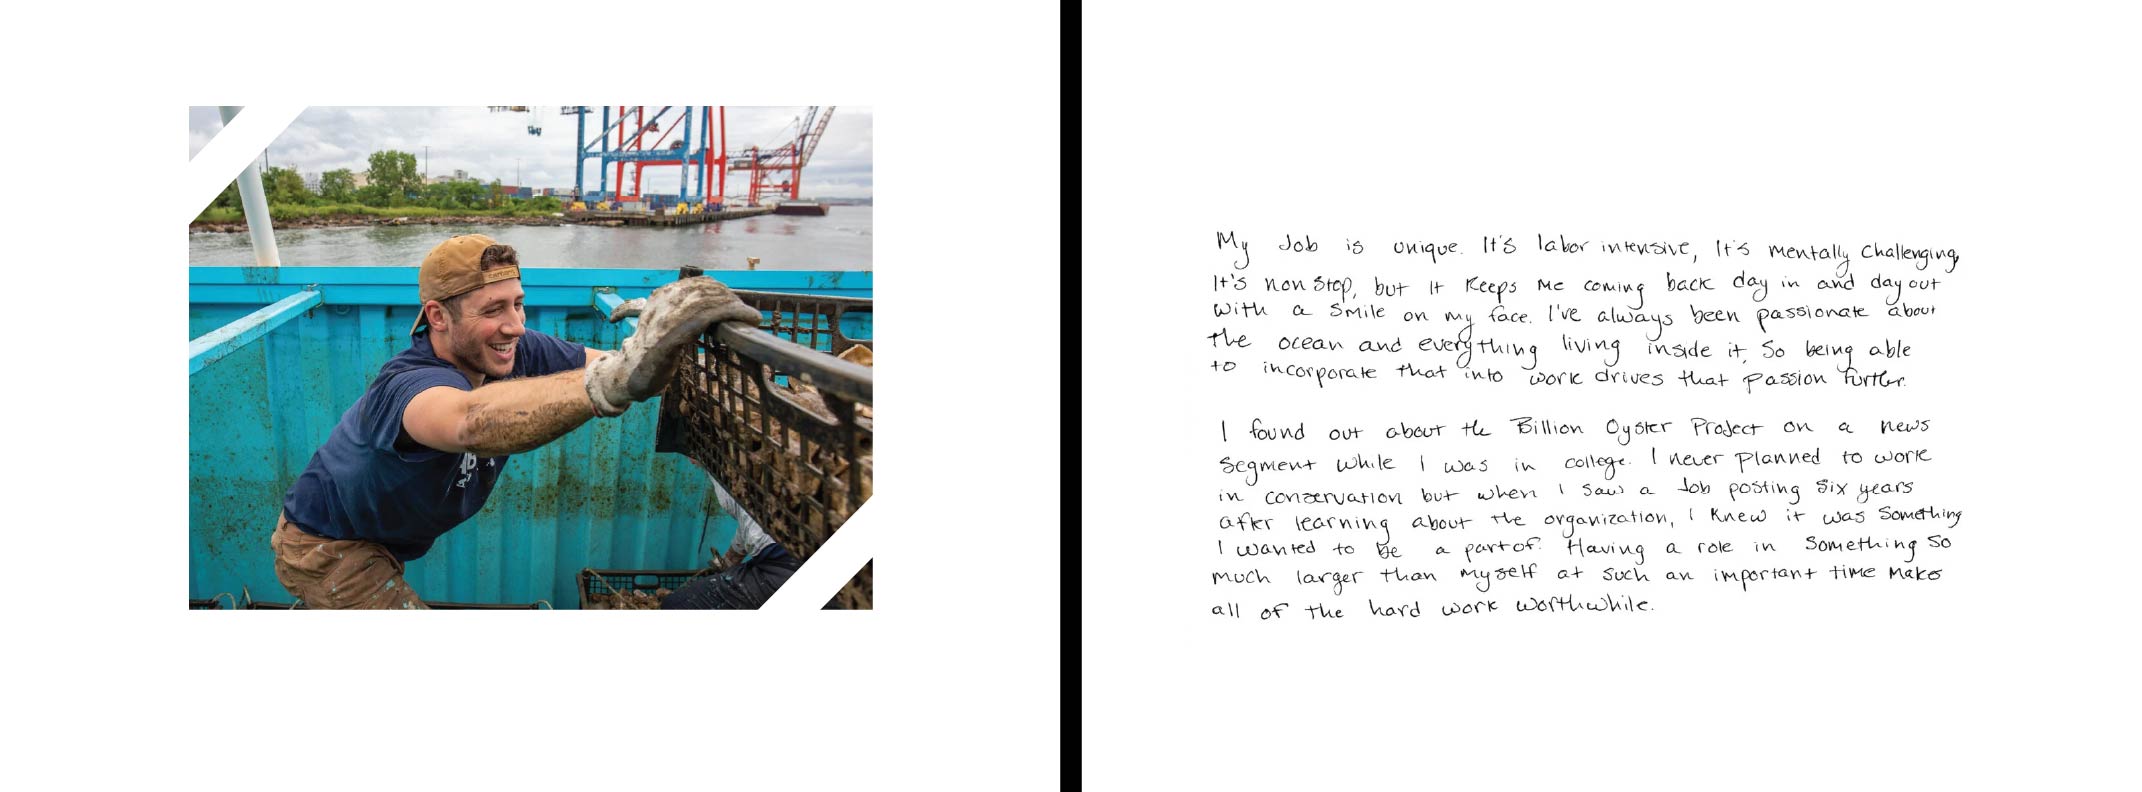 My Job is unique. It's labor intensive, It's mentally challenging,
It's non stop, but it keeps me coming back day in and day out
with a smile on my face. I've always been passionate about
the ocean and everything living inside it, So being able
to incorporate that into work drives that passion further.
I found out about the Billion Oyster Project on a news
segment while I was in college. I never planned to work
in conservation but when I saw a Job posting six years
after learning about the organization, I knew it was something
I wanted to be a part of. Having a role in something so
much larger than myself at such an important time makes
all of the hard work worthwhile.